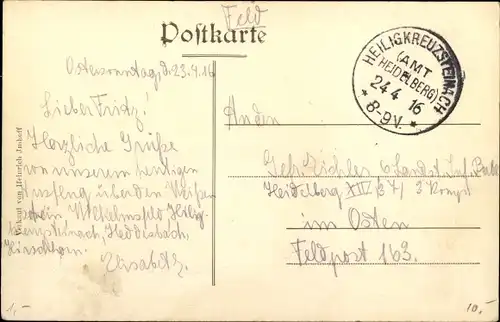 Feld
Postkarte
Ostersonntag, d. 23.4.16
Lieber Fritz!
Herzliche Grüße
von unserem heutigen
Ausflug über den Weißen
Stein, Wilhelmsfeld, Heilig-
kreuzsteinach, Heddesbach,
Hirschhorn.
Elisabeth.
Verkauf von Heinrich
HEILIGKREUZSTEINACH
(AMT
HEIDELBERG)
24 4 16
* 8-9V. *
An den
Gefr. 6 Landst. Inf. Batl.
Heidelberg XIV 3 Komp.
im Osten
Feldpost 163.
1,-
10,-